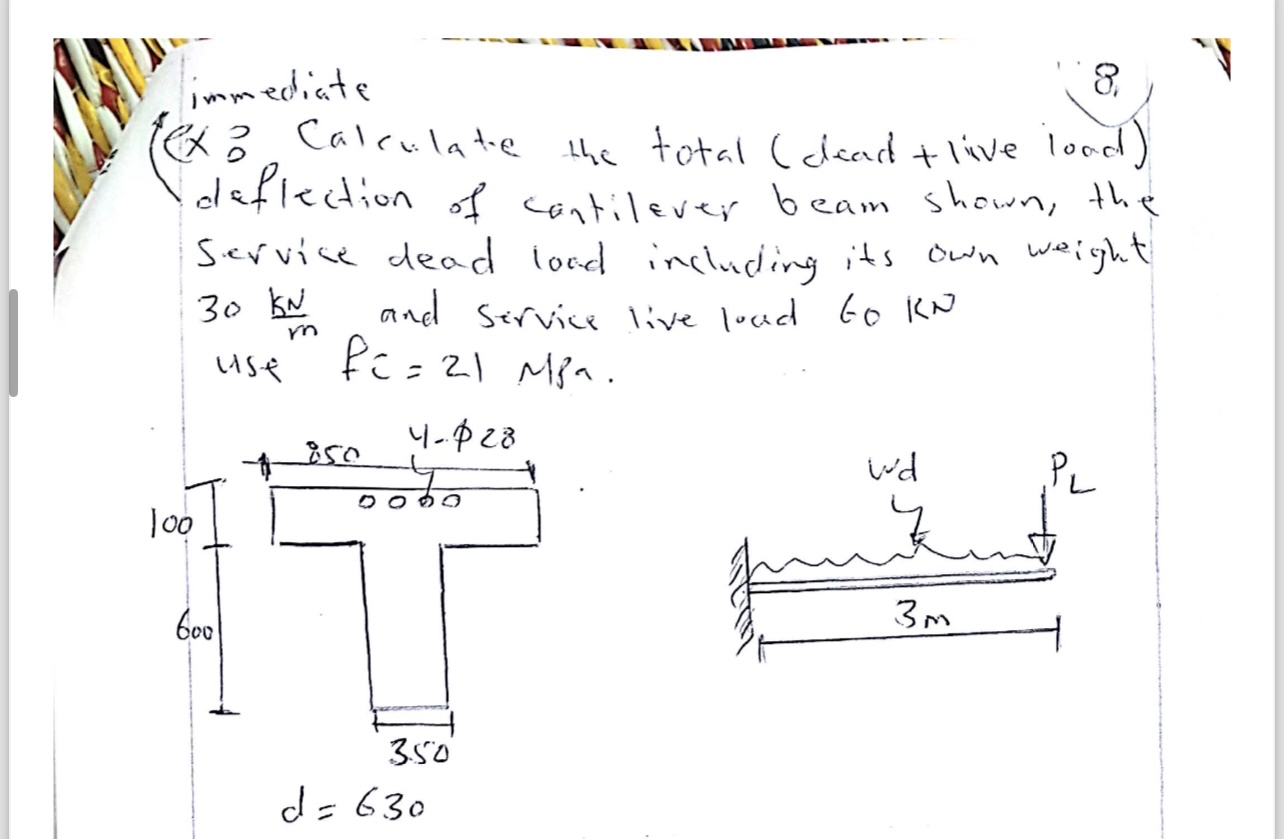 immediate
8.
ex: Calculate the total (dead + live load)
deflection of cantilever beam shown, the
Service dead load including its own weight
30 kN/m and service live load 60 KN
use fc = 21 MPa.
4-Φ28
850
100
600
350
d = 630
wd
PL
3m